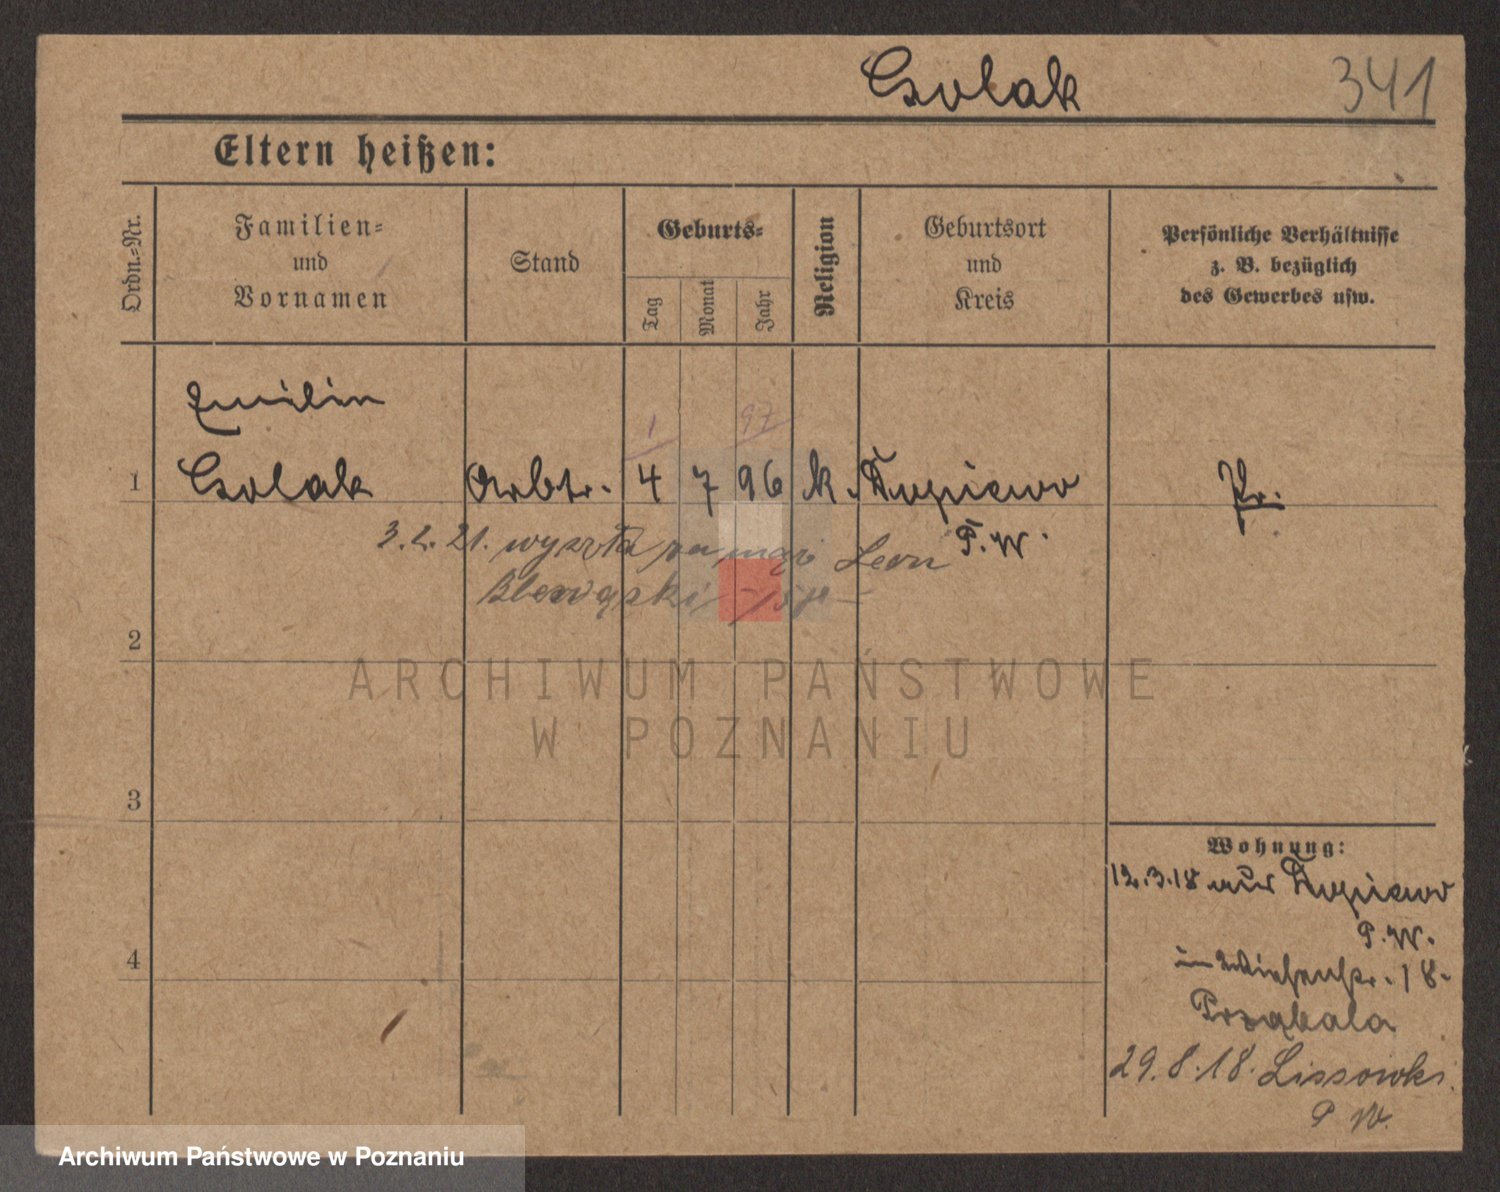 Czolak 341
Eltern heißen:
Ordn.-Nr.
Familien-
und
Vornamen
Stand
Geburts-
Tag
Monat
Jahr
Religion
Geburtsort
und
Kreis
Persönliche Verhältnisse
z. B. bezüglich
des Gewerbes usw.
Emilie
1 97
1 Czolak Arbtr. 4 7 96 k. Dupiewo Pr.
P. W.
3.2.21. wyszła za mąż Leon
2
ARCHIWUM PAŃSTWOWE
W POZNANIU
3
Wohnung:
12.3.18 aus Dupiewo
P. W.
4
in Wiesenstr. 18.
29.8.18. Lissowki.
P W.
Archiwum Państwowe w Poznaniu